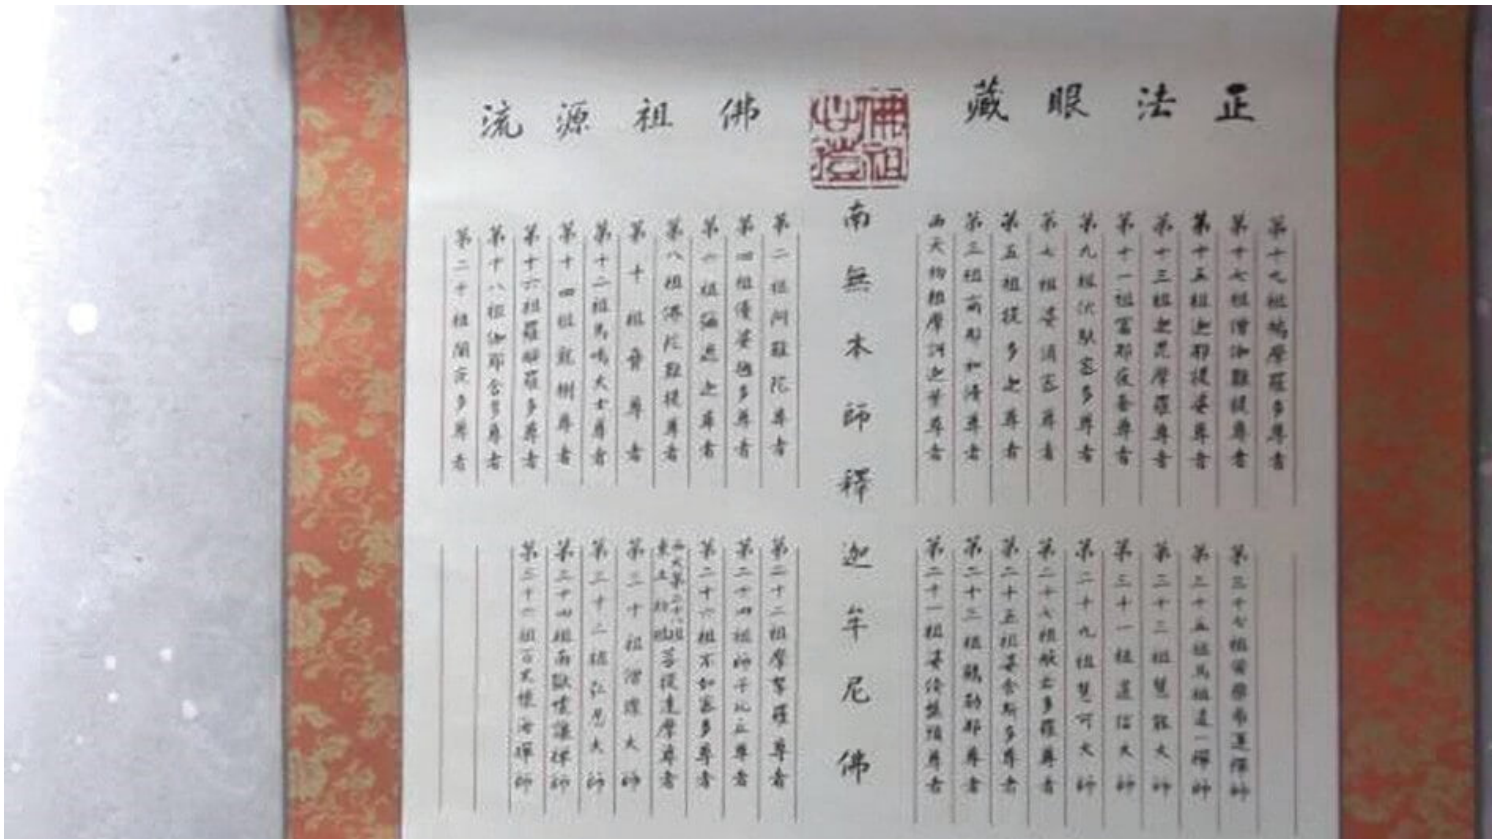 正法眼藏
佛祖心
佛祖源流
第十九祖鳩摩羅多尊者
第十七祖僧伽難提尊者
第十五祖迦那提婆尊者
第十三祖迦毘摩羅尊者
第十一祖富那夜奢尊者
第九祖伏馱密多尊者
第七祖婆須密尊者
第五祖提多迦尊者
第三祖商那和修尊者
西天初祖摩訶迦葉尊者
南無本師釋迦牟尼佛
第二祖阿難陀尊者
第四祖優婆毱多尊者
第六祖彌遮迦尊者
第八祖佛陀難提尊者
第十祖脅尊者
第十二祖馬鳴大士尊者
第十四祖龍樹尊者
第十六祖羅睺羅多尊者
第十八祖伽耶舍多尊者
第二十祖闍夜多尊者
第三十七祖黃蘗希運禪師
第三十五祖馬祖道一禪師
第三十三祖慧能大師
第三十一祖道信大師
第二十九祖慧可大師
第二十七祖般若多羅尊者
第二十五祖婆舍斯多尊者
第二十三祖鶴勒那尊者
第二十一祖婆修盤頭尊者
第二十二祖摩拏羅尊者
第二十四祖師子比丘尊者
第二十六祖不如密多尊者
西天第二十八祖
東土初祖
菩提達摩尊者
第三十祖僧璨大師
第三十二祖弘忍大師
第三十四祖南嶽懷讓禪師
第三十六祖百丈懷海禪師